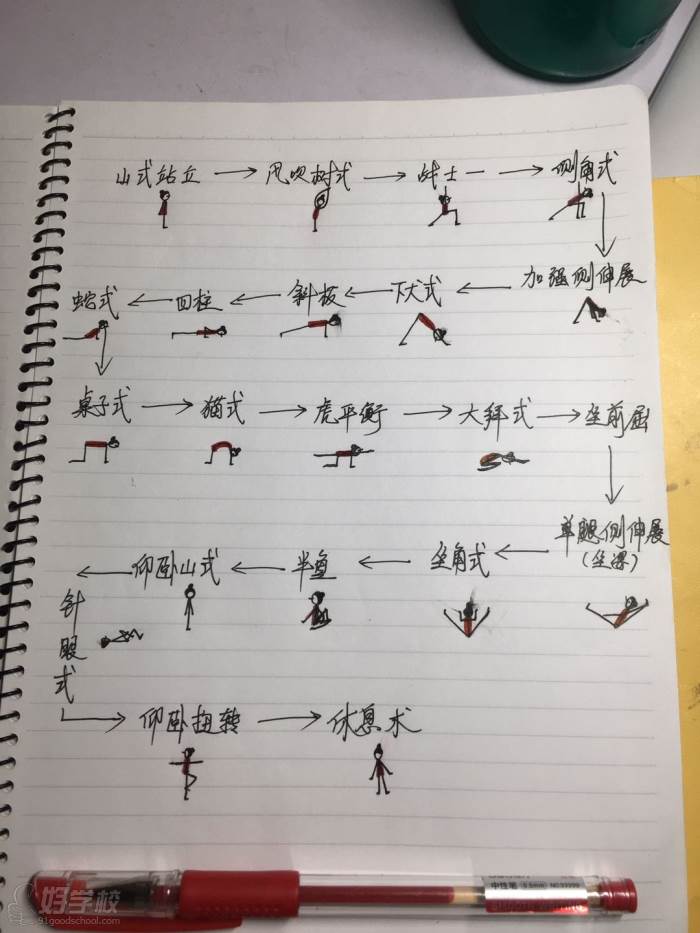 山式站立 → 风吹树式 → 战士一 → 侧角式
蛇式 ← 四柱 ← 斜板 ← 下犬式 ← 加强侧伸展
桌子式 → 猫式 → 虎平衡 → 大拜式 → 坐前屈
← 仰卧山式 ← 半鱼 ← 坐角式 ← 单腿侧伸展
(坐梁)
针眼式
→ 仰卧扭转 → 休息术
中性笔 0.5mm
好学校
91goodschool.com